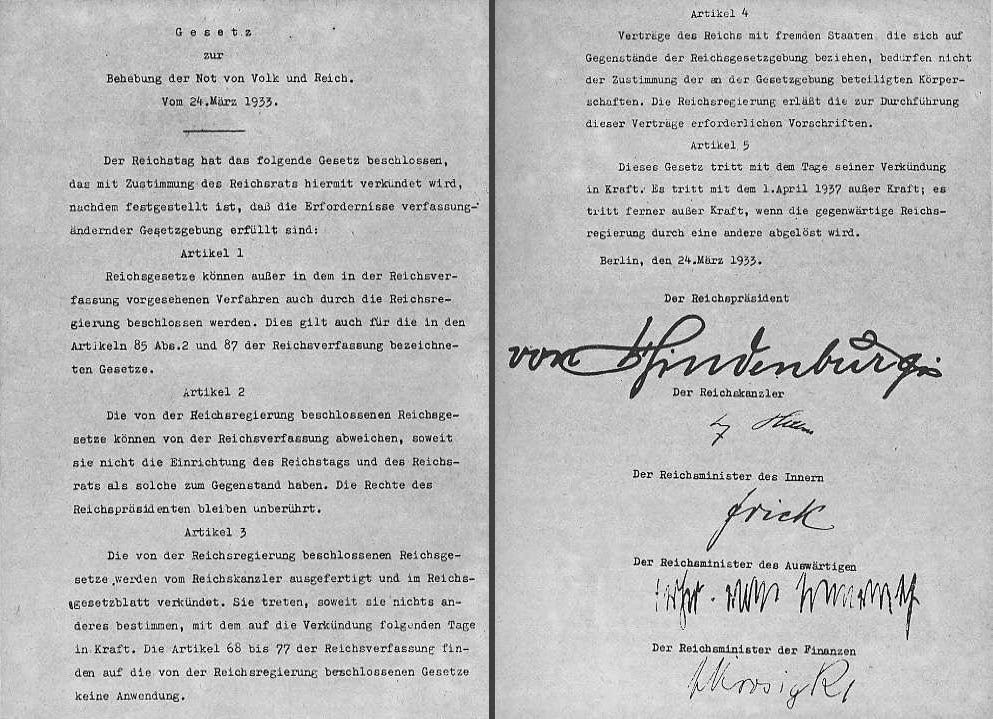 Gesetz
zur
Behebung der Not von Volk und Reich.
Vom 24.März 1933.
Der Reichstag hat das folgende Gesetz beschlossen,
das mit Zustimmung des Reichsrats hiermit verkündet wird,
nachdem festgestellt ist, daß die Erfordernisse verfassung-
ändernder Gesetzgebung erfüllt sind:
Artikel 1
Reichsgesetze können außer in dem in der Reichsver-
fassung vorgesehenen Verfahren auch durch die Reichsre-
gierung beschlossen werden. Dies gilt auch für die in den
Artikeln 85 Abs.2 und 87 der Reichsverfassung bezeichne-
ten Gesetze.
Artikel 2
Die von der Reichsregierung beschlossenen Reichsge-
setze können von der Reichsverfassung abweichen, soweit
sie nicht die Einrichtung des Reichstags und des Reichs-
rats als solche zum Gegenstand haben. Die Rechte des
Reichspräsidenten bleiben unberührt.
Artikel 3
Die von der Reichsregierung beschlossenen Reichsge-
setze werden vom Reichskanzler ausgefertigt und im Reichs-
gesetzblatt verkündet. Sie treten, soweit sie nichts an-
deres bestimmen, mit dem auf die Verkündung folgenden Tage
in Kraft. Die Artikel 68 bis 77 der Reichsverfassung fin-
den auf die von der Reichsregierung beschlossenen Gesetze
keine Anwendung.
Artikel 4
Verträge des Reichs mit fremden Staaten die sich auf
Gegenstände der Reichsgesetzgebung beziehen, bedürfen nicht
der Zustimmung der an der Gesetzgebung beteiligten Körper-
schaften. Die Reichsregierung erläßt die zur Durchführung
dieser Verträge erforderlichen Vorschriften.
Artikel 5
Dieses Gesetz tritt mit dem Tage seiner Verkündung
in Kraft. Es tritt mit dem 1.April 1937 außer Kraft; es
tritt ferner außer Kraft, wenn die gegenwärtige Reichs-
regierung durch eine andere abgelöst wird.
Berlin, den 24.März 1933.
Der Reichspräsident
von Hindenburg
Der Reichskanzler
Hitler
Der Reichsminister des Innern
Frick
Der Reichsminister des Auswärtigen
Der Reichsminister der Finanzen
Krosigk